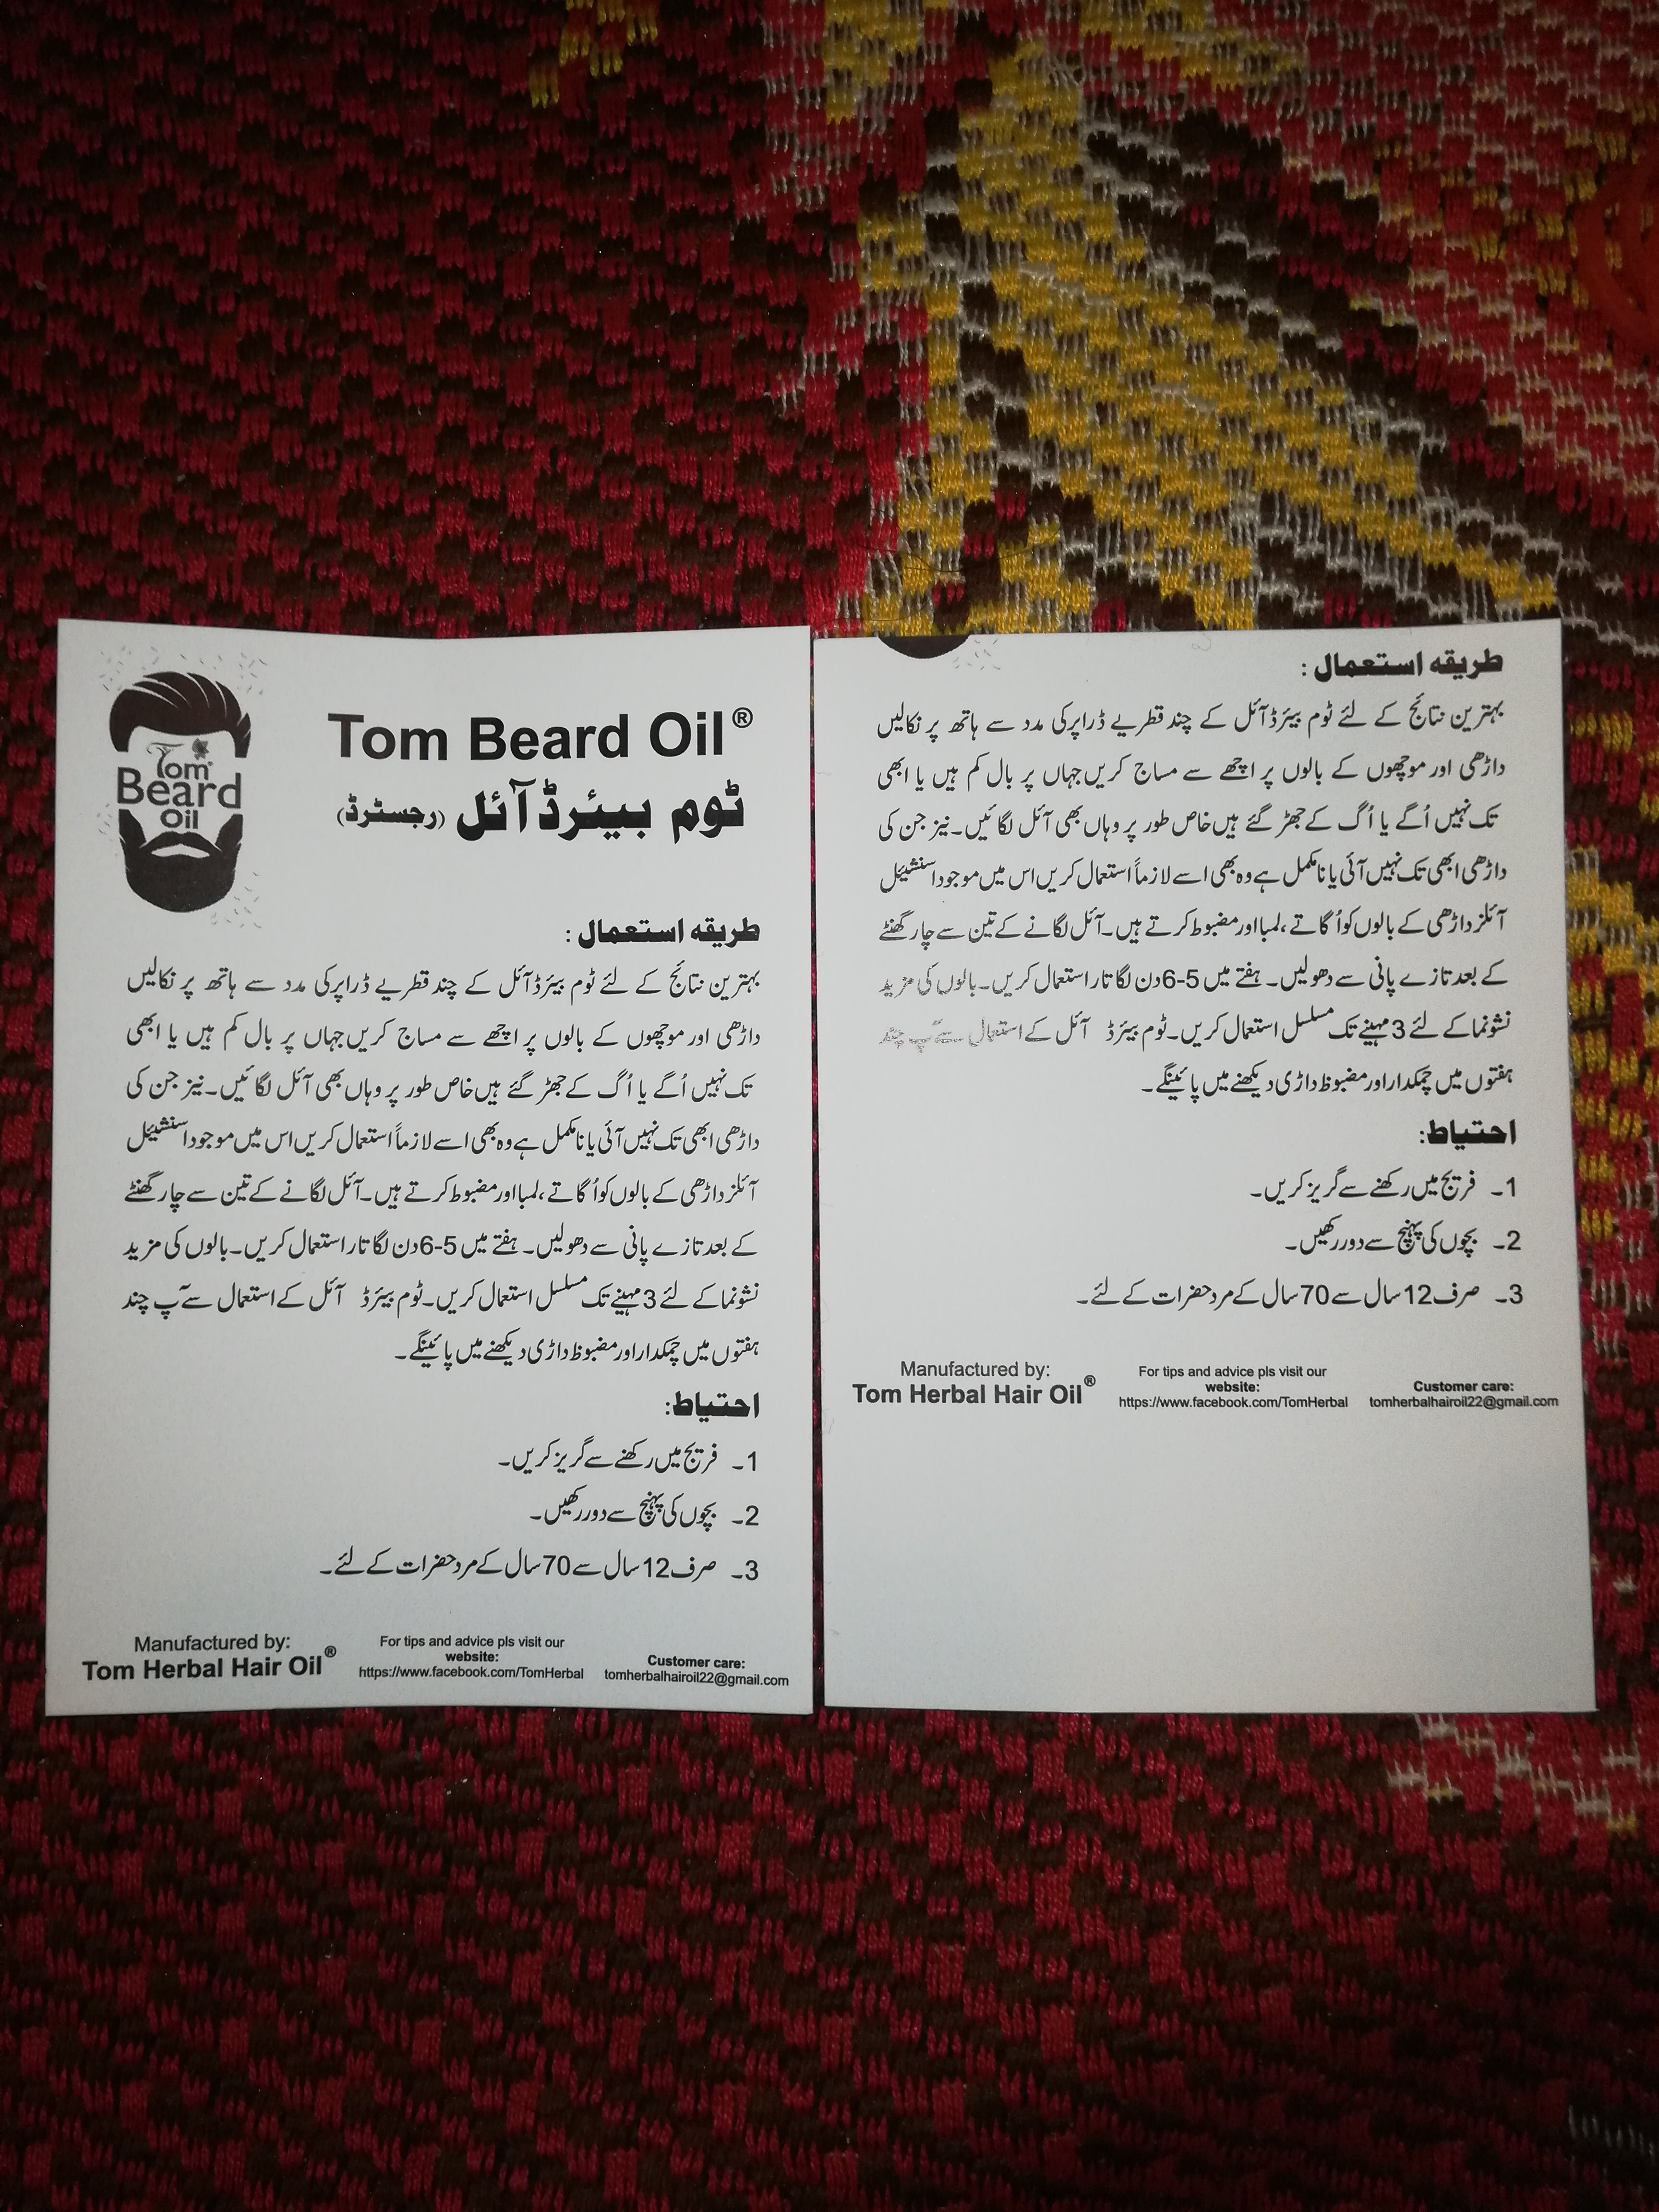 Tom
Beard
Oil
Tom Beard Oil®
ٹوم بیئرڈ آئل (رجسٹرڈ)
طریقه استعمال :
بہترین نتائج کے لئے ٹوم بیئرڈ آئل کے چند قطریے ڈراپر کی مدد سے ہاتھ پر نکالیں
داڑھی اور موچھوں کے بالوں پر اچھے سے مساج کریں جہاں پر بال کم ہیں یا ابھی
تک نہیں اُگے یا اُگ کے جھڑ گئے ہیں خاص طور پر وہاں بھی آئل لگائیں۔ نیز جن کی
داڑھی ابھی تک نہیں آئی یا نا مکمل ہے وہ بھی اسے لازماً استعمال کریں اس میں موجود اسنشیئل
آئلز داڑھی کے بالوں کو اُگاتے ، لمبا اور مضبوط کرتے ہیں۔ آئل لگانے کے تین سے چار گھنٹے
کے بعد تازے پانی سے دھولیں۔ ہفتے میں 5-6 دن لگا تار استعمال کریں۔ بالوں کی مزید
نشونما کے لئے 3 مہینے تک مسلسل استعمال کریں۔ ٹوم بیئرڈ آئل کے استعمال سے آپ چند
ہفتوں میں چمکدار اور مضبوظ داڑی دیکھنے میں پائینگے۔
احتیاط:
1۔ فریج میں رکھنے سے گریز کریں۔
2۔ بچوں کی پہنچ سے دور رکھیں۔
3۔ صرف 12 سال سے 70 سال کے مرد حضرات کے لئے۔
Manufactured by:
Tom Herbal Hair Oil®
For tips and advice pls visit our
website:
https://www.facebook.com/TomHerbal
Customer care:
tomherbalhairoil22@gmail.com
طریقه استعمال :
بہترین نتائج کے لئے ٹوم بیئرڈ آئل کے چند قطریے ڈراپر کی مدد سے ہاتھ پر نکالیں
داڑھی اور موچھوں کے بالوں پر اچھے سے مساج کریں جہاں پر بال کم ہیں یا ابھی
تک نہیں اُگے یا اُگ کے جھڑ گئے ہیں خاص طور پر وہاں بھی آئل لگائیں۔ نیز جن کی
داڑھی ابھی تک نہیں آئی یا نا مکمل ہے وہ بھی اسے لازماً استعمال کریں اس میں موجود اسنشیئل
آئلز داڑھی کے بالوں کو اُگاتے ، لمبا اور مضبوط کرتے ہیں۔ آئل لگانے کے تین سے چار گھنٹے
کے بعد تازے پانی سے دھولیں۔ ہفتے میں 5-6 دن لگا تار استعمال کریں۔ بالوں کی مزید
نشونما کے لئے 3 مہینے تک مسلسل استعمال کریں۔ ٹوم بیئرڈ آئل کے استعمال سے آپ چند
ہفتوں میں چمکدار اور مضبوظ داڑی دیکھنے میں پائینگے۔
احتیاط:
1۔ فریج میں رکھنے سے گریز کریں۔
2۔ بچوں کی پہنچ سے دور رکھیں۔
3۔ صرف 12 سال سے 70 سال کے مرد حضرات کے لئے۔
Manufactured by:
Tom Herbal Hair Oil®
For tips and advice pls visit our
website:
https://www.facebook.com/TomHerbal
Customer care:
tomherbalhairoil22@gmail.com